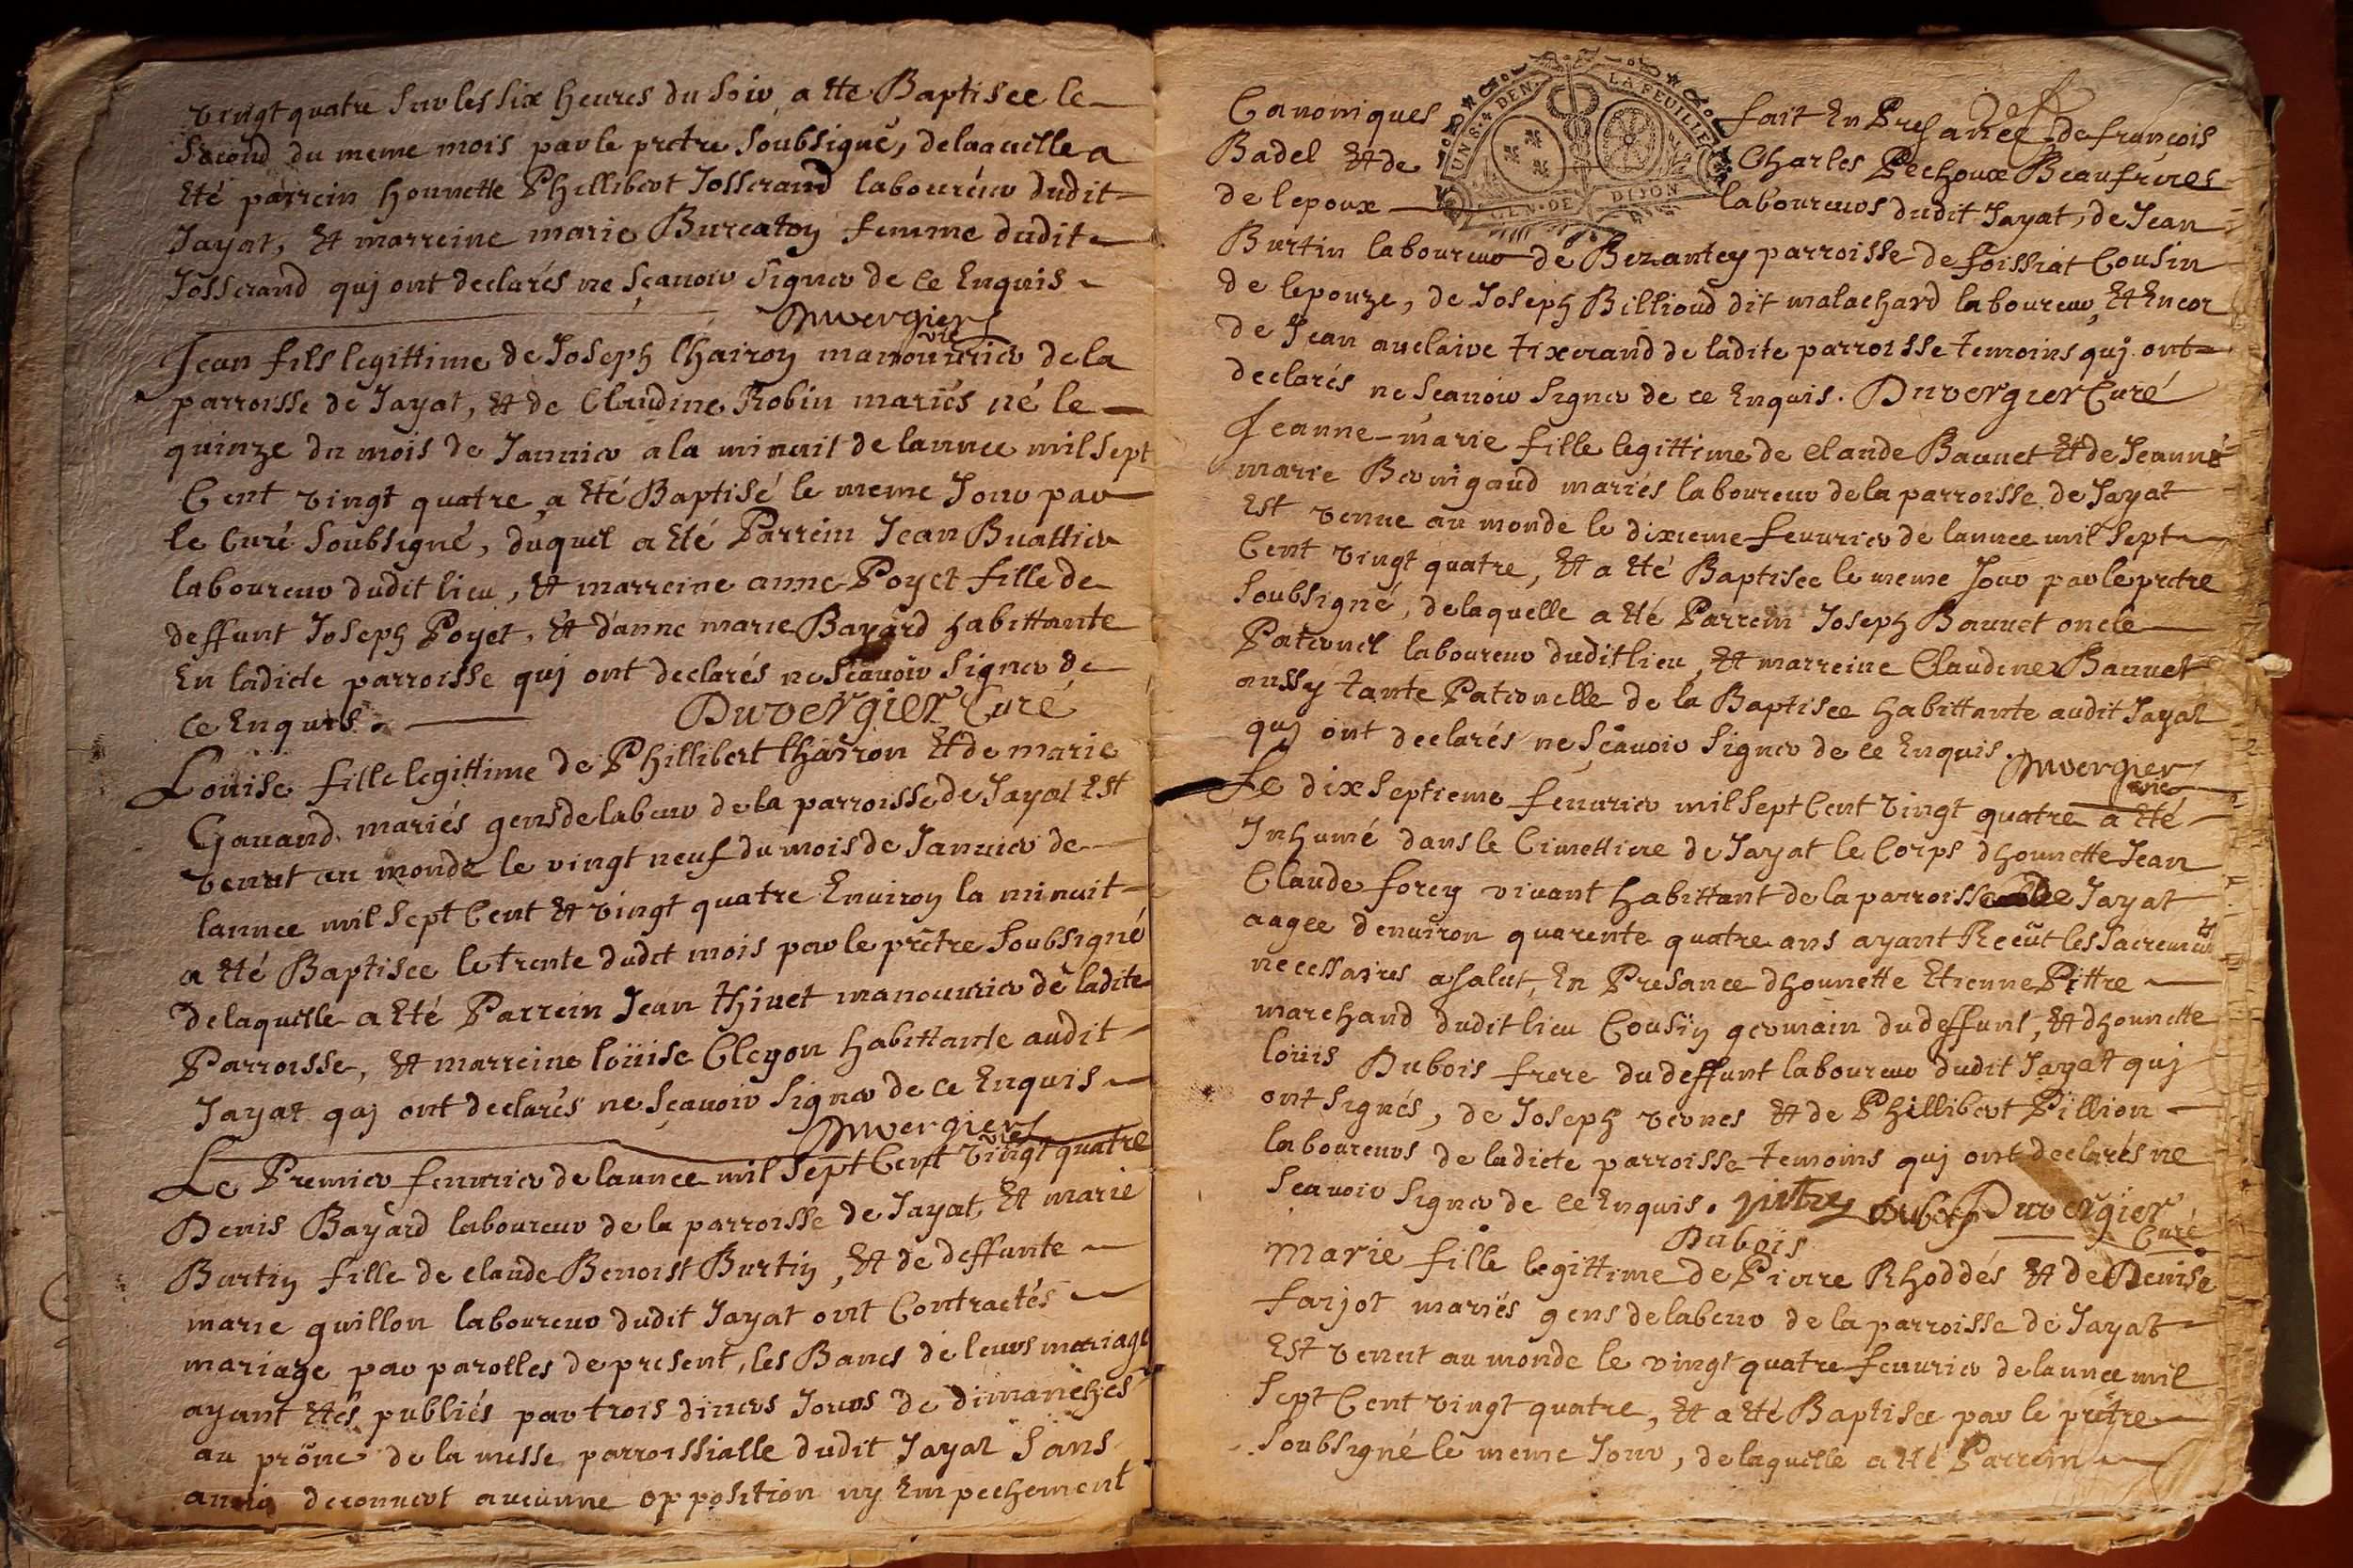 vingt quatre sur les six heures du soir a ete Baptisee le
second du meme mois par le pretre soubsigné, delaquelle a
Eté parrein honnette Phillibert Josserand laboureur dudit
Jayat, Et marreine marie Bureatoy femme dudit
Josserand quj ont declarés ne sçavoir signer de ce Enquis
Duvergier
curé
Jean fils legittime de Joseph Chairoy manouurier de la
parroisse de Jayat, Et de Claudine Robin mariés né le
quinze du mois de Januier a la minuit de lannee mil sept
Cent vingt quatre a Eté Baptisé le meme Jour par
le Curé soubsigné, duquel a Eté Parrein Jean Buattier
laboureur dudit lieu, Et marreine anne Poyet fille de
deffunt Joseph Poyet, Et d'anne marie Bayard habittante
En ladicte parroisse quj ont declarés ne sçavoir signer de
ce Enquis. Duvergier Curé
Loüise fille legittime de Phillibert Chairon Et de marie
Gauand mariés gens de labeur de la parroisse de Jayat Est
venut au monde le vingt neuf du mois de Januier de
lannee mil sept Cent Et vingt quatre Enuiroy la minuit
a Eté Baptisee le trente dudit mois par le prêtre soubsigné
delaquelle a Eté Parrein Jean thiuet manouurier de ladite
Parroisse, Et marreine loüise Cleyon habittante audit
Jayat quj ont declarés ne sçavoir signer de ce Enquis
Duvergier
curé
Le Premier feurier de lannee mil sept Cent vingt quatre
Denis Bayard laboureur de la parroisse de Jayat, Et marie
Burtiy fille de claude Benoist Burtiy, Et de deffunte
marie guillon laboureur dudit Jayat ont Contractés
mariage par parolles de present, les Bancs de leurs mariage
ayant Etés publiés par trois diuers Jours de dimanches
au prône de la messe parroissialle dudit Jayat sans
auoir decouuert aucunne opposition ny Empechement
Canoniques fait En Presance de françois
Badel Et de Charles Pechoux Beaufreres
de lepoux laboureurs dudit Jayat, de Jean
UN S. 4 DEN. LA FEUILLE
GEN. DE DIJON
Burtin laboureur de Bezantey parroisse de foissiat Cousin
de lepouze, de Joseph Billioud dit malachard laboureur, Et Encor
de Jean auclaire tixerand de ladite parroisse temoins quj ont
declarés ne sçavoir signer de ce Enquis. Duvergier Curé
Jeanne-marie fille legittime de claude Bauuet Et de Jeanne
marie Bernigaud mariés laboureur de la parroisse de Jayat
Est venue au monde le dixieme feurier de lannee mil sept
Cent vingt quatre, Et a Eté Baptisee le meme Jour par le prêtre
soubsigné, delaquelle a Eté Parrein Joseph Bauuet oncle
Paternel laboureur dudit lieu, Et marreine Claudine Bauuet
aussy tante Paternelle de la Baptisee habittante audit Jayat
quj ont declarés ne sçavoir signer de ce Enquis. Duvergier
curé
Le dix septieme feurier mil sept Cent vingt quatre a Eté
Inhumé dans le Cimettiere de Jayat le Corps d'honnette Jean
Claude forey vivant habittant de la parroisse de Jayat
aagee denuiron quarente quatre ans ayant Recüt les sacrements
necessaires a salut, En Presance d'honnette Etienne Pittre
marchand dudit lieu Cousiy germain du deffunt, Et d'honnette
loüis Dubois frere du deffunt laboureur dudit Jayat quj
ont signés, de Joseph vernes Et de Phillibert Pillion
laboureurs de ladicte parroisse temoins quj ont declarés ne
sçavoir signer de ce Enquis. pittre Dubois Duvergier
Dubois Curé
Marie fille legittime de Pierre Rhoddés Et de Denise
farjot mariés gens de labeur de la parroisse de Jayat
Est venut au monde le vingt quatre feurier de lannee mil
sept Cent vingt quatre, Et a Eté Baptisee par le prêtre
soubsigné le meme Jour, delaquelle a Eté Parrein